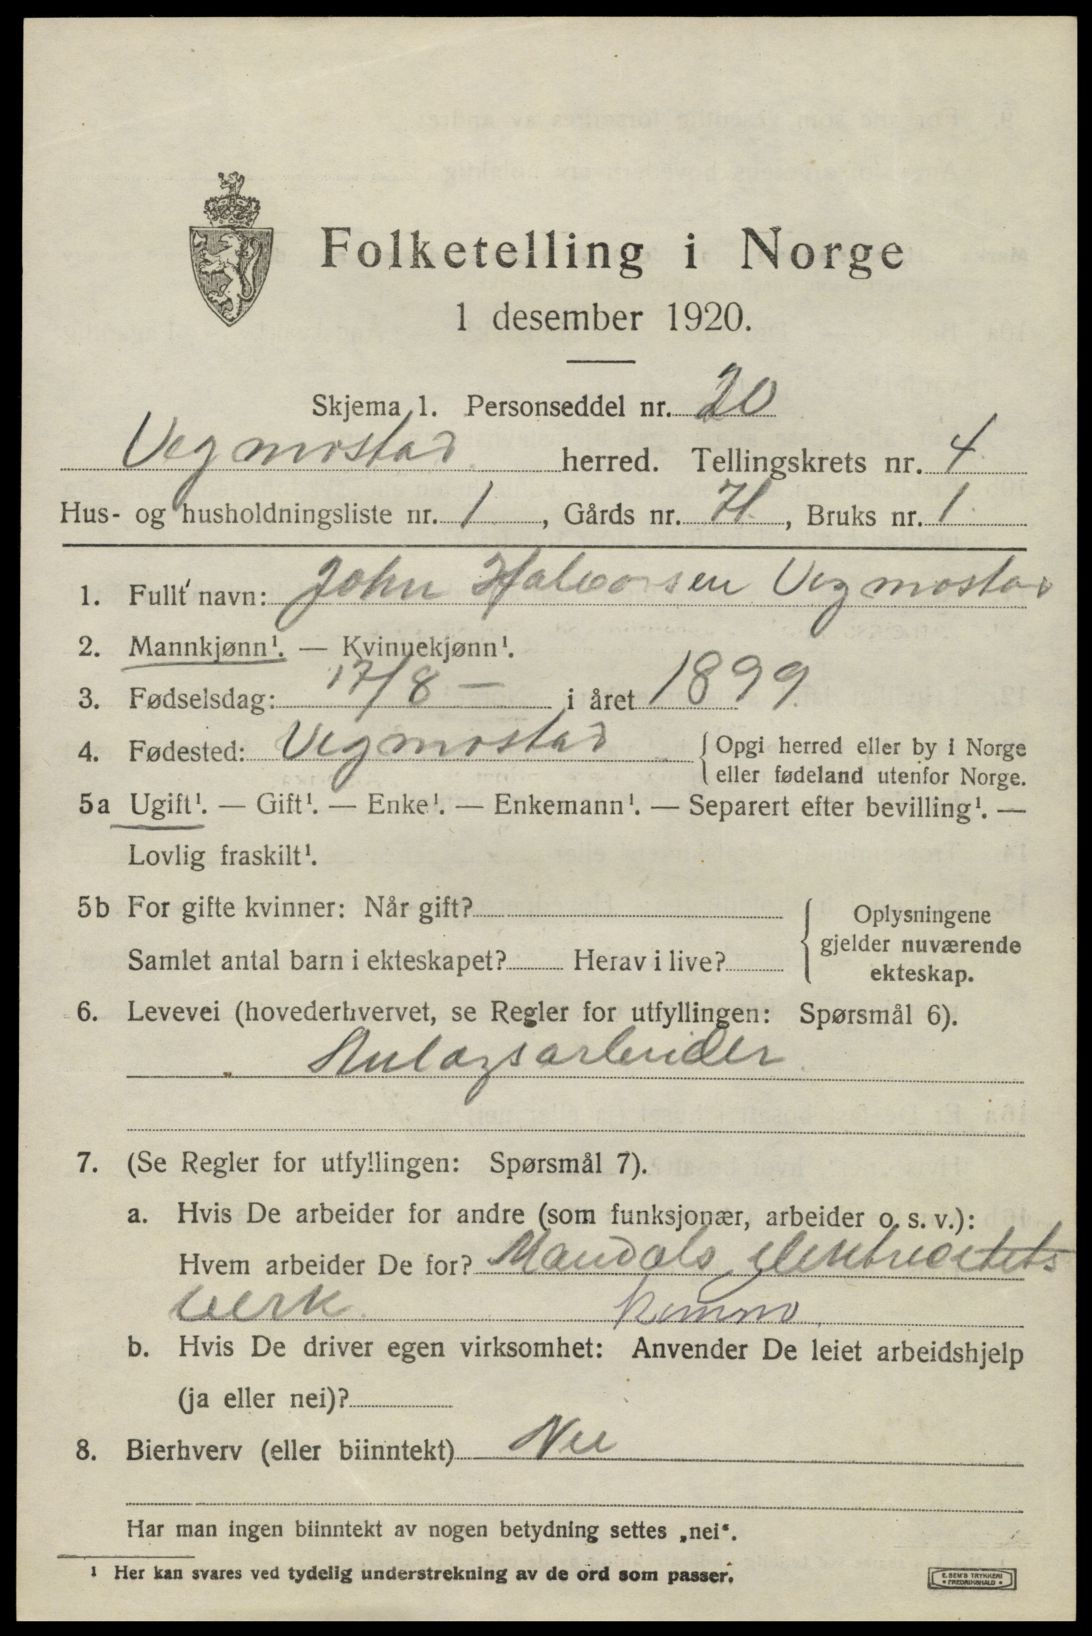 Folketelling i Norge
1 desember 1920.
Skjema 1. Personseddel nr. 20
Vegmostad herred. Tellingskrets nr. 4
Hus- og husholdningsliste nr. 1, Gårds nr. 71, Bruks nr. 1
1. Fullt navn: John Halvorsen Vegmostad
2. Mannkjønn¹. — Kvinnekjønn¹.
3. Fødselsdag: 17/8 — i året 1899
4. Fødested: Vegmostad { Opgi herred eller by i Norge
eller fødeland utenfor Norge.
5a Ugift¹. — Gift¹. — Enke¹. — Enkemann¹. — Separert efter bevilling¹. —
Lovlig fraskilt¹.
5b For gifte kvinner: Når gift?
Samlet antal barn i ekteskapet? Herav i live?
{ Oplysningene
gjelder nuværende
ekteskap.
6. Levevei (hovederhvervet, se Regler for utfyllingen: Spørsmål 6).
Anlægsarbeider
7. (Se Regler for utfyllingen: Spørsmål 7).
a. Hvis De arbeider for andre (som funksjonær, arbeider o. s. v.):
Hvem arbeider De for? Mandals elektricitets
verk. komm.
b. Hvis De driver egen virksomhet: Anvender De leiet arbeidshjelp
(ja eller nei)?
8. Bierhverv (eller biinntekt) Nei
Har man ingen biinntekt av nogen betydning settes „nei“.
¹ Her kan svares ved tydelig understrekning av de ord som passer.
E. SEM'S TRYKKERI
• FREDRIKSHALD •